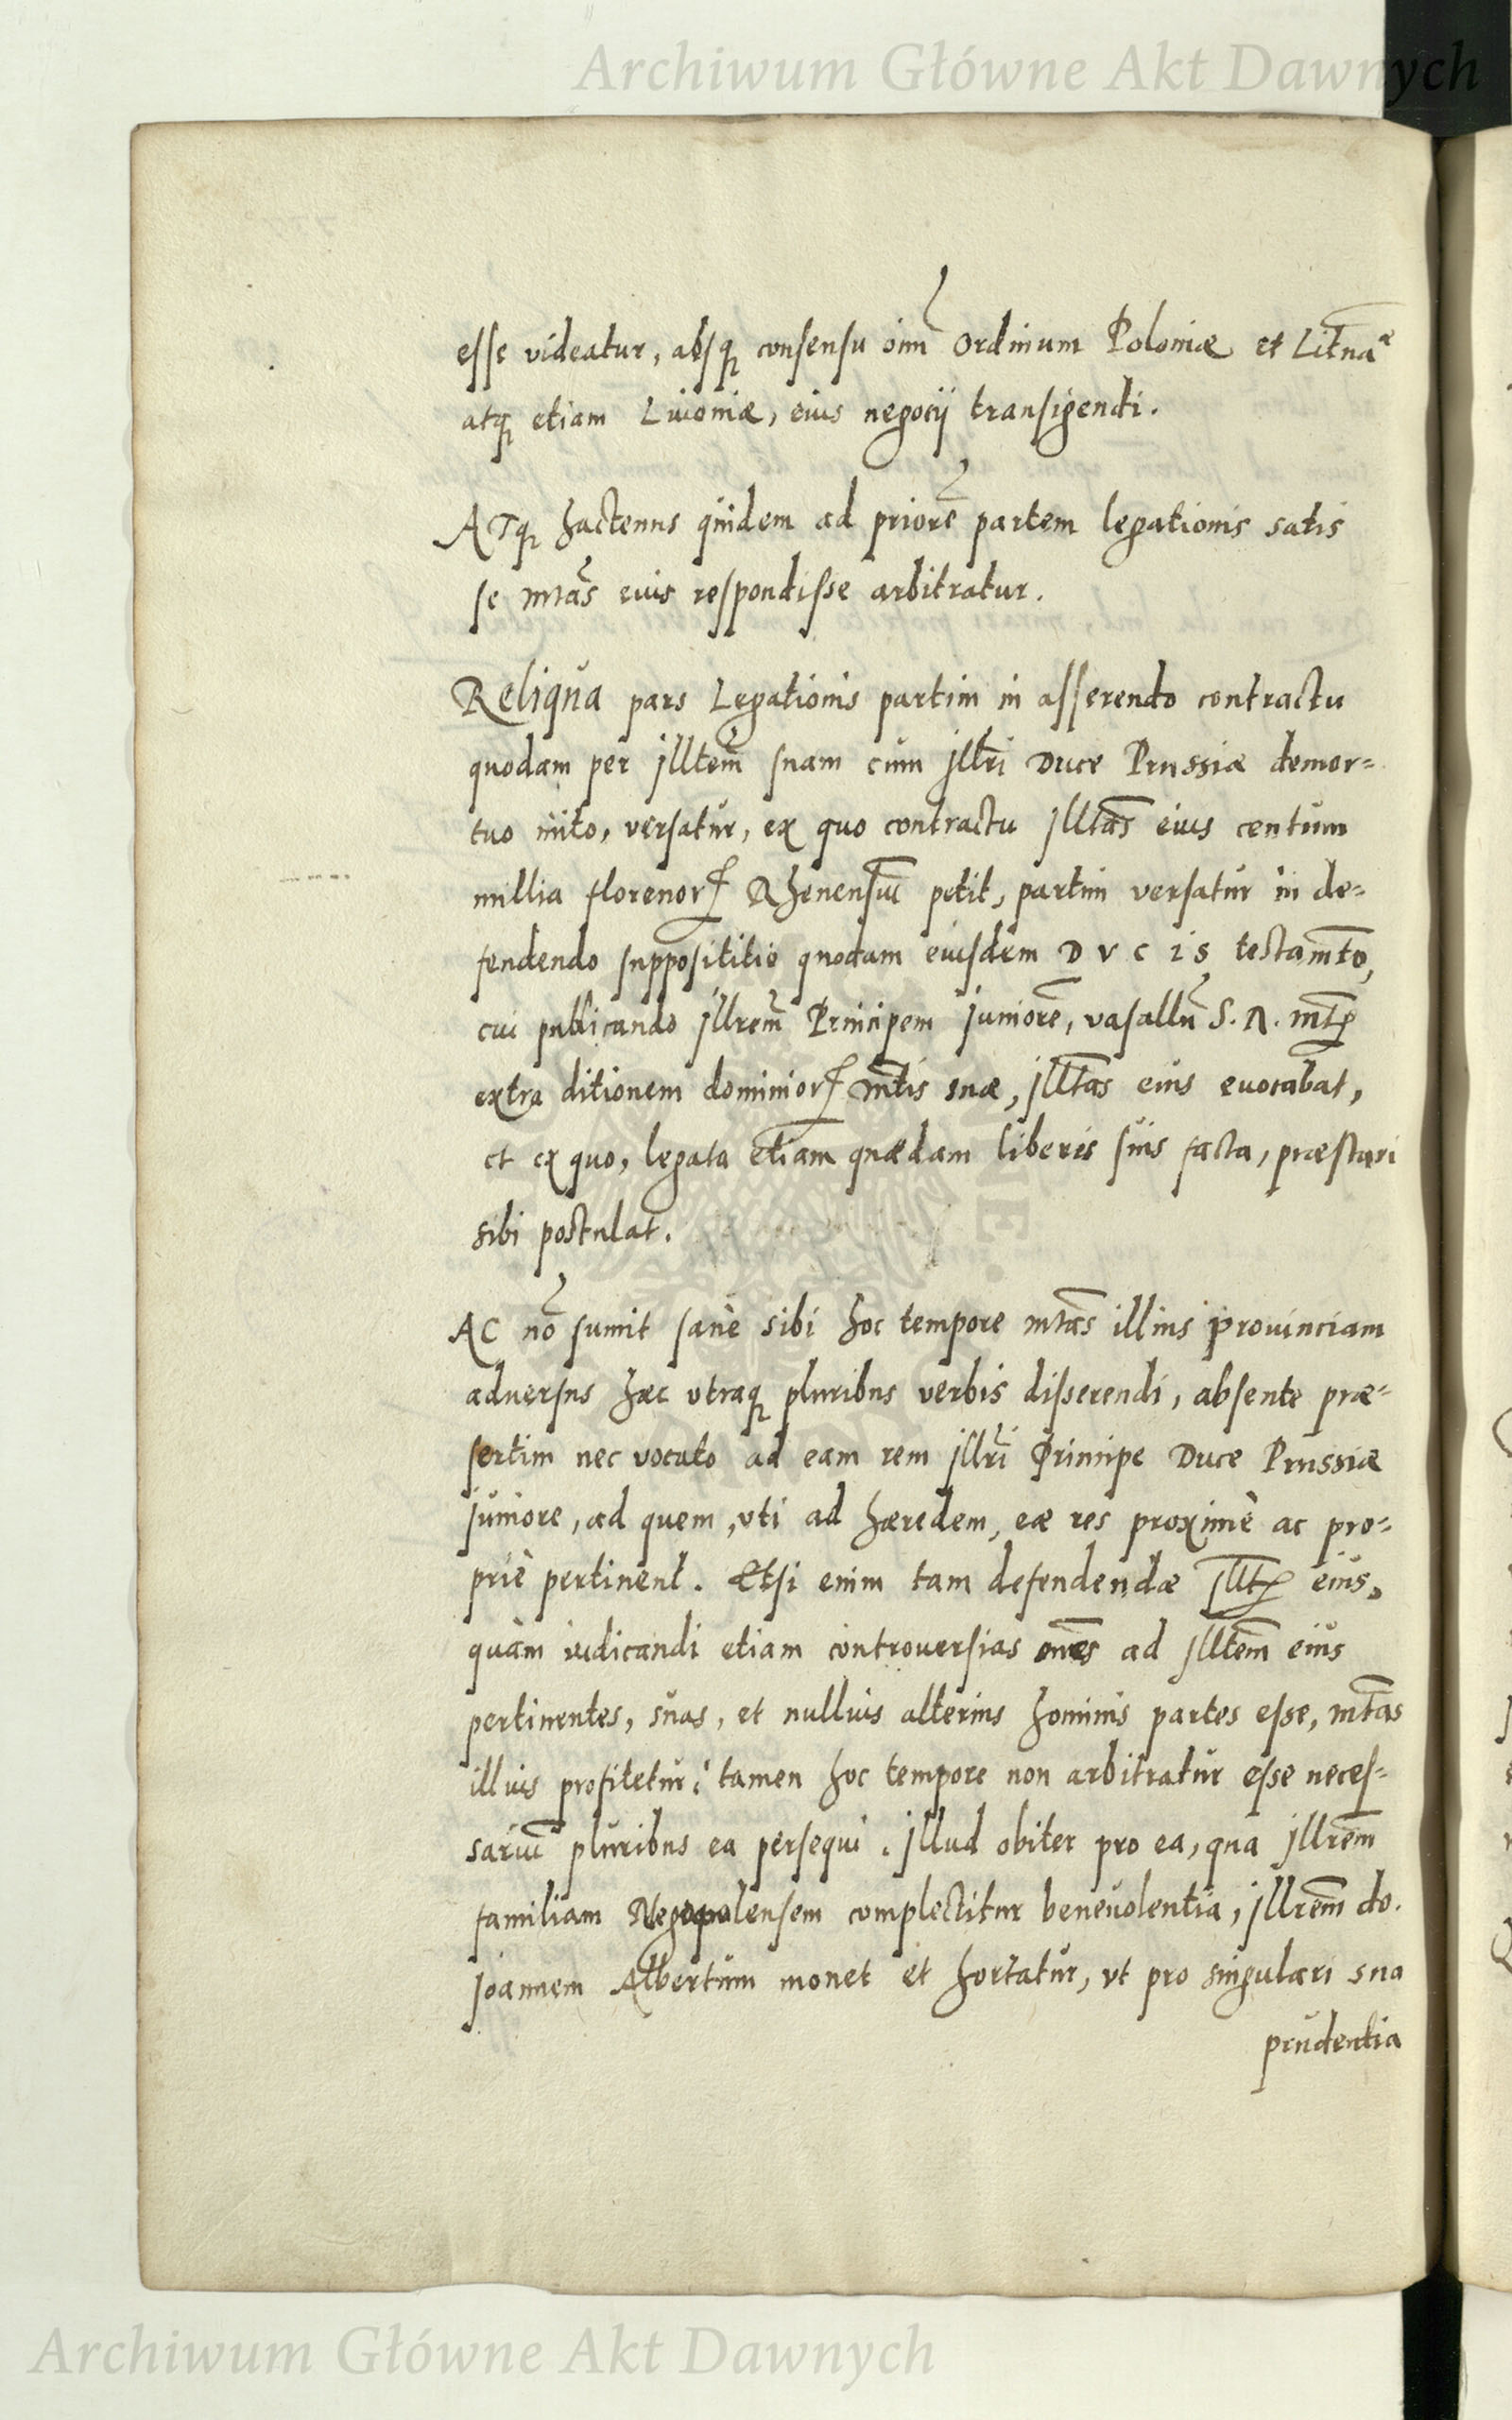 Archiwum Główne Akt Dawnych
esse videatur, absq; consensu oim̄ Ordinum Poloniæ et Litnæ
atq; etiam Liuoniæ, eius negocij transigendi.
ATq; hactenus quidem ad priorē partem legationis satis
se mtas eius respondisse arbitratur.
Reliqua pars Legationis partim in asserendo contractu
quodam per jlltem suam cum jllri Duce Prussiæ demor=
tuo inito, versatur, ex quo contractu jlltas eius centum
millia florenorꝝ Rhenensiū petit, partim versatur in de=
fendendo supposititio quodam eiusdem D v c i s testamto,
cui publicando jllrem Principem juniorē, vasallū S. R. mtꝭ
extra ditionem dominiorꝝ mtis suæ, jlltas eius euocabat,
et ex quo, legata etiam quædam liberis suis facta, præstari
sibi postulat.
AC nō sumit sanè sibi hoc tempore mtas illius prouinciam
aduersus hæc vtraq; pluribus verbis disserendi, absente præ=
sertim nec vocato ad eam rem jllri Principe Duce Prussiæ
juniore, ad quem, vti ad hæredem, eæ res proximè ac pro=
priè pertinent. Etsi enim tam defendendæ jlltꝭ eius,
quàm iudicandi etiam controuersias om̄es ad jlltem eius
pertinentes, suas, et nullius alterius hominis partes esse, mtas
illius profitetur: tamen hoc tempore non arbitratur esse neces=
sariū pluribus ea persequi. jllud obiter pro ea, qua jllrem
familiam Megapolensem complectitur beneuolentia, jllrem do.
joannem Albertum monet et hortatur, vt pro singulari sua
prudentia
Archiwum Główne Akt Dawnych